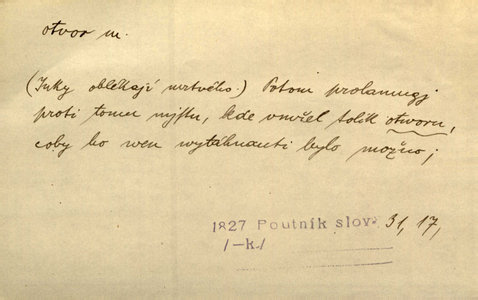 otvor m.
(Inky oblékají mrtvého.) Potom prolamugj
proti tomu mjstu, kde vmřel tolik otworu,
coby ho wen wytáhnauti bylo možno;
1827 Poutník slov. 31, 17,
/-k/